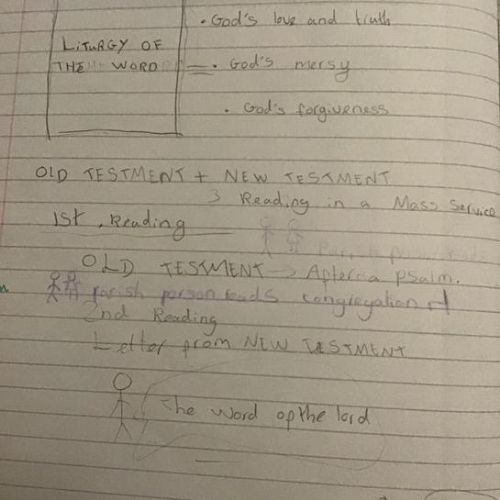 • God's love and truth
LITURGY OF
THE WORD = • God's mersy
• God's forgiveness
OLD TESTMENT + NEW TESTMENT
3 Reading in a Mass Service
1st Reading
OLD TESTMENT -> After a psalm.
parish person reads congregation
2nd Reading
Letter from NEW TESTMENT
The word of the lord